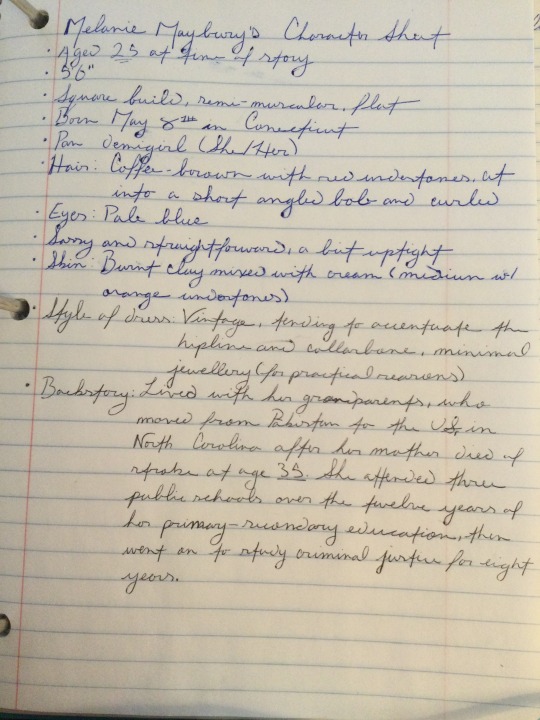 Melanie Maybury's Character Sheet
· Aged 25 at time of story
· 5'6"
· Square build, semi-muscular, flat
· Born May 8th in Conneticut
· Pan demigirl (She/Her)
· Hair: Coffee-brown with red undertones, cut
into a short angled bob and curled
· Eyes: Pale blue
· Sassy and straightforward, a bit uptight
· Skin: Burnt clay mixed with cream (medium w/
orange undertones)
· Style of dress: Vintage, tending to accentuate the
hipline and collarbone, minimal
jewellery (for practical reasons)
· Backstory: Lived with her grandparents, who
moved from Pakistan to the US, in
North Carolina after her mother died of
stroke at age 35. She attended three
public schools over the twelve years of
her primary-secondary education, then
went on to study criminal justice for eight
years.